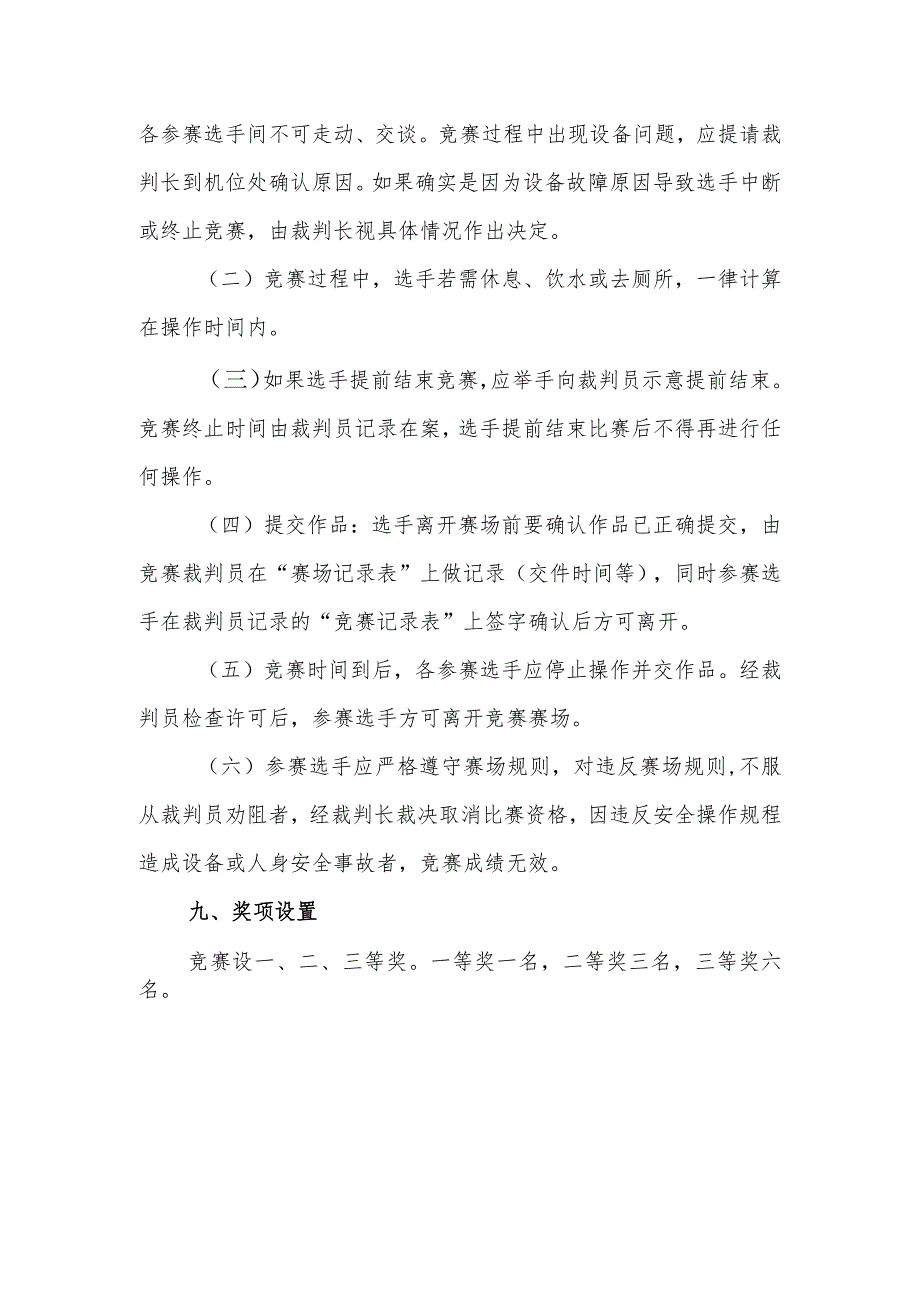 各参赛选手间不可走动、交谈。竞赛过程中出现设备问题，应提请裁
判长到机位处确认原因。如果确实是因为设备故障原因导致选手中断
或终止竞赛，由裁判长视具体情况作出决定。
（二）竞赛过程中，选手若需休息、饮水或去厕所，一律计算
在操作时间内。
（三）如果选手提前结束竞赛，应举手向裁判员示意提前结束。
竞赛终止时间由裁判员记录在案，选手提前结束比赛后不得再进行任
何操作。
（四）提交作品：选手离开赛场前要确认作品已正确提交，由
竞赛裁判员在“赛场记录表”上做记录（交件时间等），同时参赛选
手在裁判员记录的“竞赛记录表”上签字确认后方可离开。
（五）竞赛时间到后，各参赛选手应停止操作并交作品。经裁
判员检查许可后，参赛选手方可离开竞赛赛场。
（六）参赛选手应严格遵守赛场规则，对违反赛场规则,不服
从裁判员劝阻者，经裁判长裁决取消比赛资格，因违反安全操作规程
造成设备或人身安全事故者，竞赛成绩无效。
九、奖项设置
竞赛设一、二、三等奖。一等奖一名，二等奖三名，三等奖六
名。